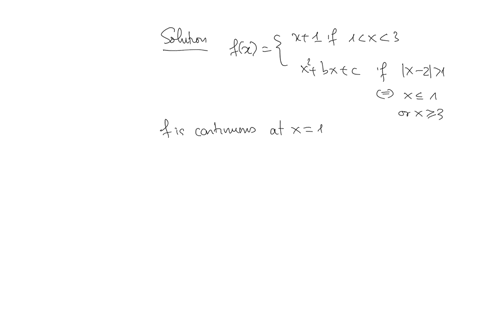 Solution f(x) = { x+1 if 1<x<3
x²+bx+c if |x-2|>1
(=) x ≤ 1
or x ≥ 3
f is continuous at x=1